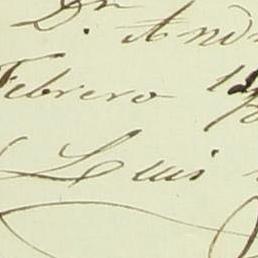 Dn. And
Febrero 1
Luis